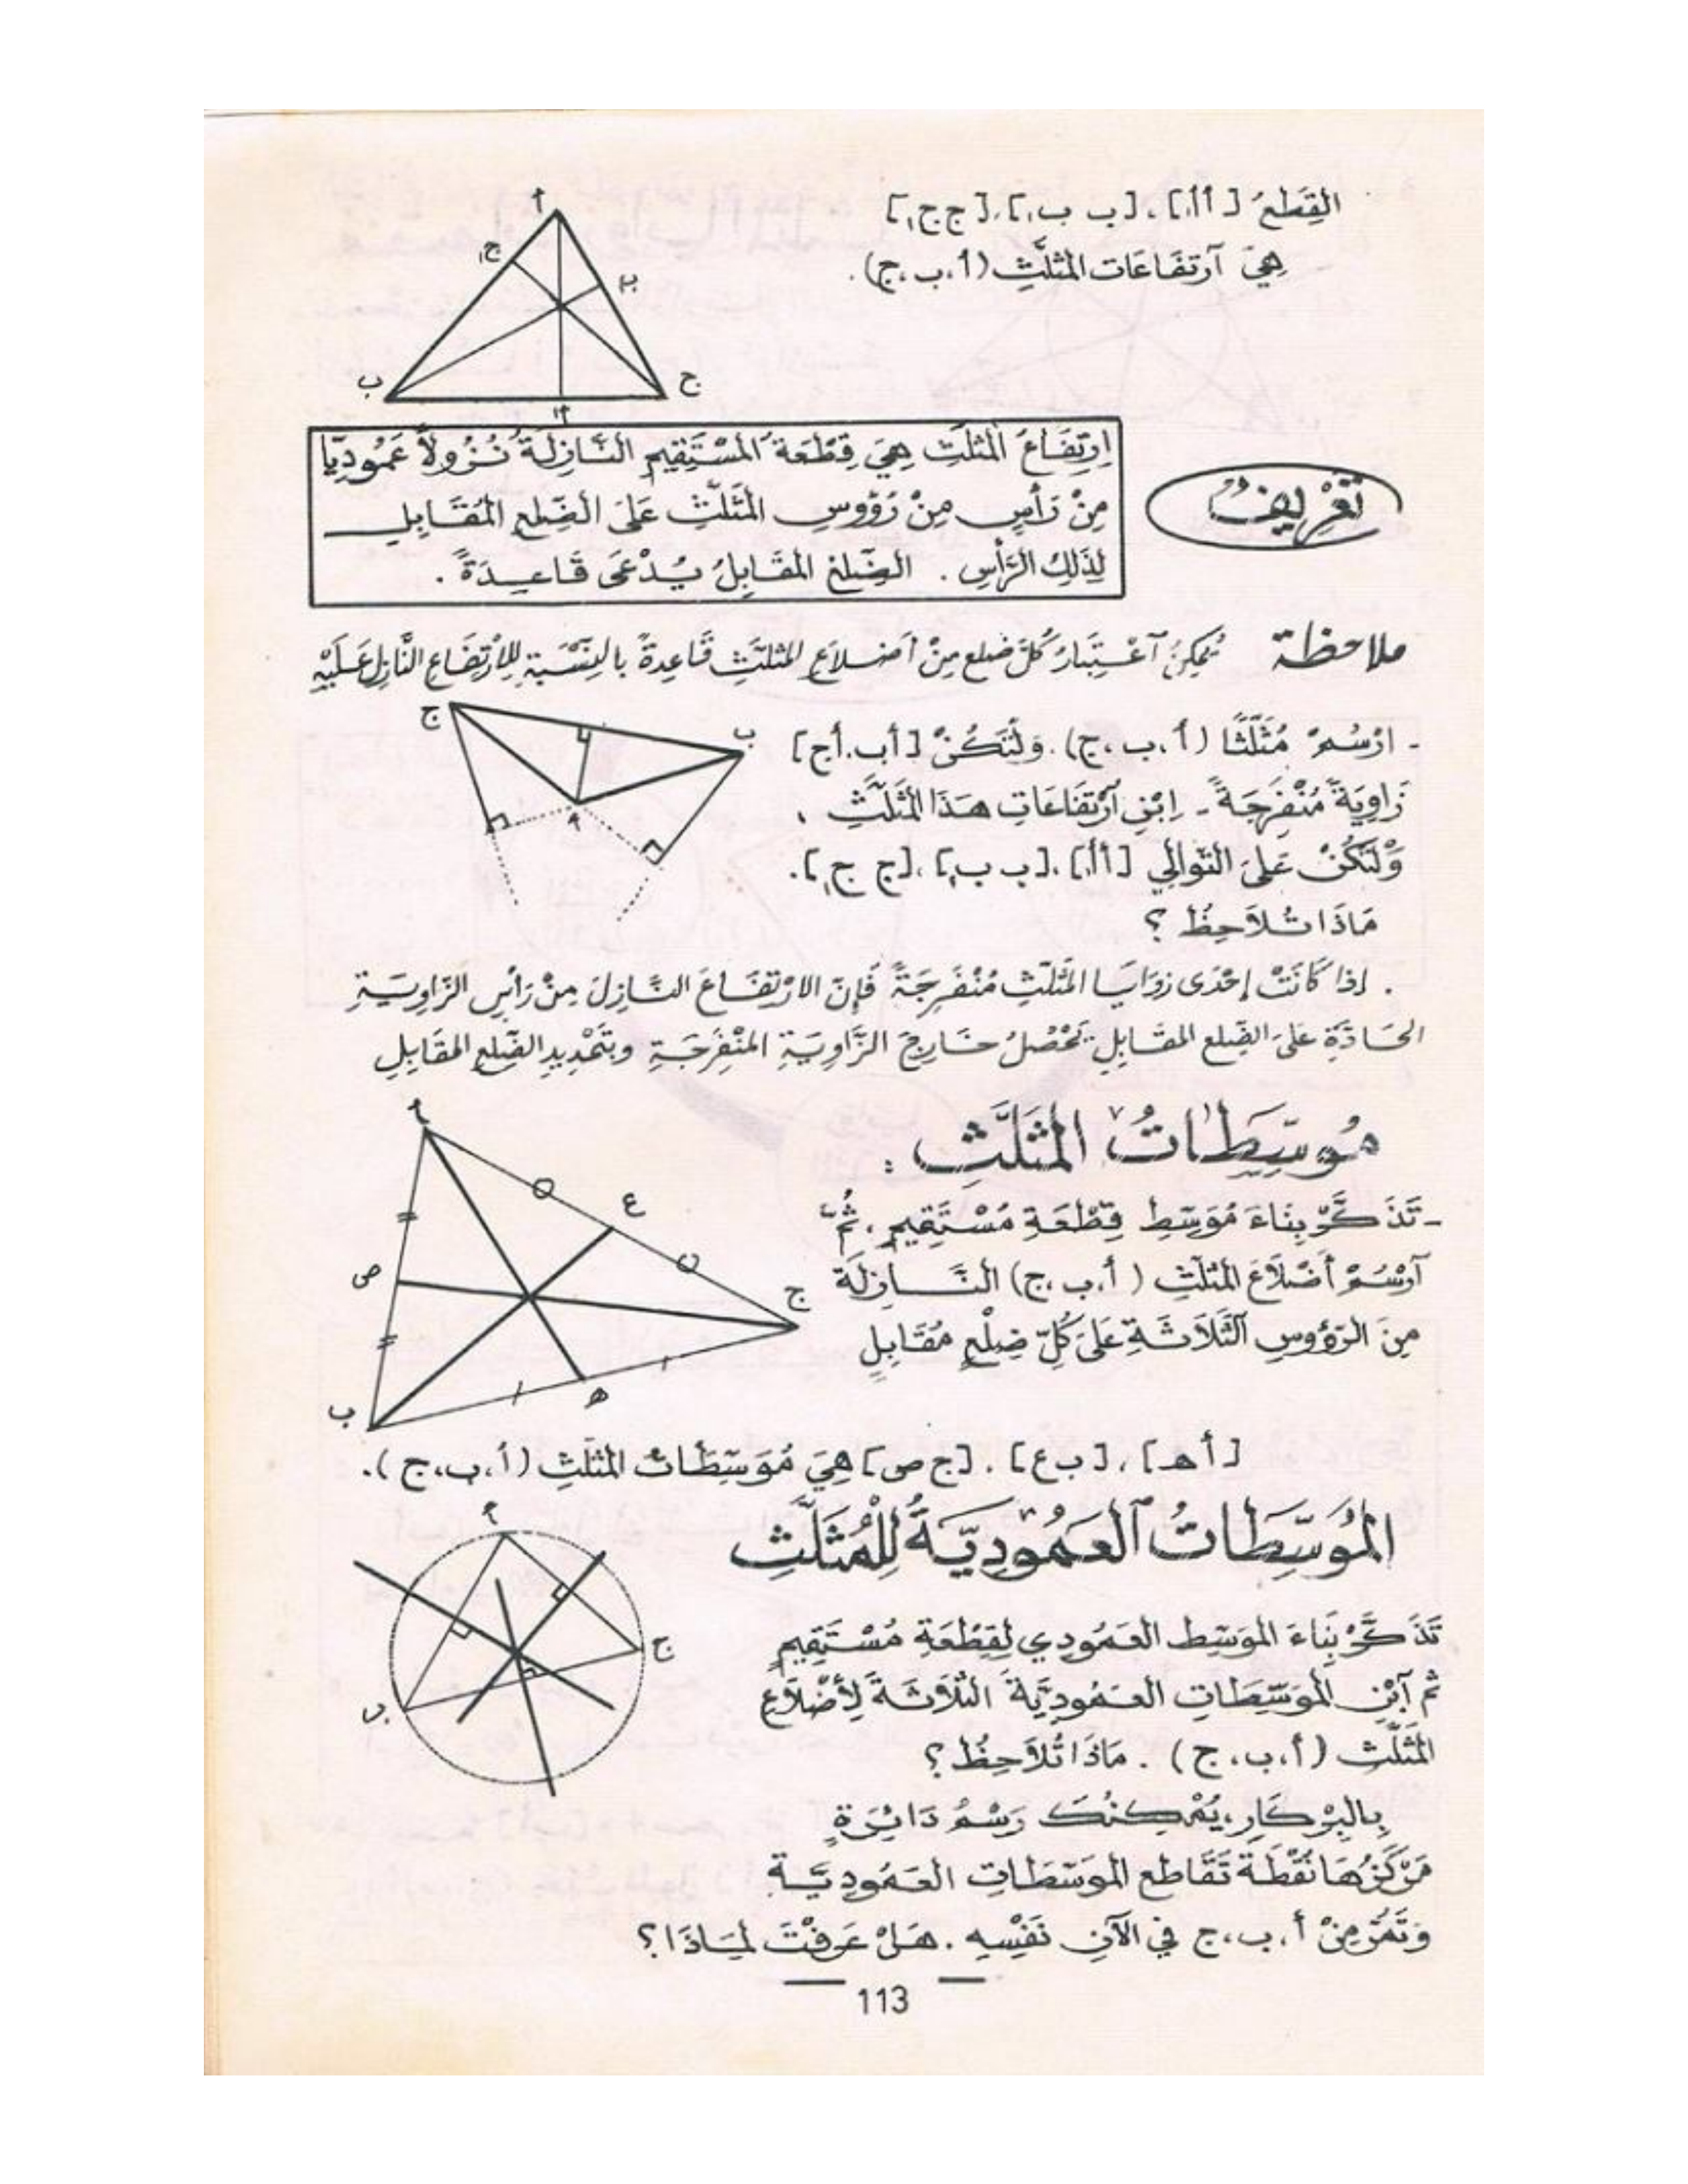 القِطَعُ [أأ₁]، [ب ب₁]، [ج ج₁]
هِيَ آرتفَاعَات المثلَّثِ (أ،ب،ج).
أ
ج₁
ب₁
ب
ج
أ₁
اِرتِفَاعُ المثلَّثِ هِيَ قِطْعَةُ المُسْتَقِيمِ النَّازِلَةُ نُزُولاً عَمُودِيّا
مِنْ رَأسٍ مِنْ رُؤُوسِ المثَلَّثِ عَلَى الضِّلعِ المُقَابِلِ
لِذَلِكَ الرَّأسِ . الضِّلعُ المقَابِلُ يُدْعَى قَاعِدَةً .
تَعْرِيفُ
ملاحظة يُمكِنُ آعْتِبَارُ كُلّ ضلعٍ مِنْ أضلاَعِ المثلَّثِ قَاعِدةً بالنِّسْبَةِ لِلارْتِفَاعِ النَّازِلِ عَلَيْهِ
ج
ب
أ
- ارْسُمْ مُثَلَّثًا (أ،ب،ج). وَلْتَكُنْ [أب،أج]
زَاوِيَةً مُنْفَرِجَةً - اِبْنِ آرْتفَاعَاتِ هَذَا المُثَلَّثِ ،
وَلْتَكُنْ عَلَى التّوالِي [أأ₁]،[ب ب₁]،[ج ج₁].
مَاذَا تُلاَحِظُ ؟
. إذا كَانَتْ إحْدَى زوَايَا المثَلّثِ مُنْفَرِجَةً فَإنّ الارْتِفَاعَ النَّازِلَ مِنْ رَأسِ الزّاوِيَةِ
الحَادّةِ عَلَى الضِّلعِ المقَابِلِ يَحْصُلُ خَارِجَ الزَّاوِيَةِ المنْفَرِجَةِ وبتَمْدِيدِ الضِّلعِ المقَابِلِ
مُوَسِّطَاتُ المثَلَّثِ :
أ
ع
ص
ج
ه
ب
- تَذَكَّرْ بِنَاءَ مُوَسِّطِ قِطْعَةِ مُسْتَقِيمٍ ، ثُمّ
آرْسُمْ أضْلاَعَ المثلّثِ (أ،ب،ج) النَّازِلَةَ
مِنَ الرّؤُوسِ الثَّلاَثَةِ عَلَى كُلِّ ضِلْعٍ مُقَابِلٍ
[أهـ]، [ب ع]، [ج ص] هِيَ مُوَسِّطَاتُ المثلَّثِ (أ،ب،ج).
المُوَسِّطَاتُ العَمُودِيّةُ لِلْمُثَلَّثِ
أ
ج
ب
تَذَكَّرْ بِنَاءَ الموَسِّطِ العَمُودِي لِقِطْعَةِ مُسْتَقِيمٍ
ثم آبْنِ الموَسِّطَاتِ العَمُودِيَّةَ الثّلاَثَةَ لِأَضْلاَعِ
المُثَلّثِ (أ،ب،ج) . مَاذَا تُلاَحِظُ ؟
بِالبِرْكَارِ ، يُمْكِنُكَ رَسْمُ دَائِرَةٍ
مَرْكَزُهَا نُقْطَةُ تَقَاطعِ الموَسّطَاتِ العَمُودِيَّةِ
وَتَمُرّ مِنْ أ،ب،ج في الآنِ نَفْسِهِ . هَلْ عَرَفْتَ لمَاذَا ؟
113